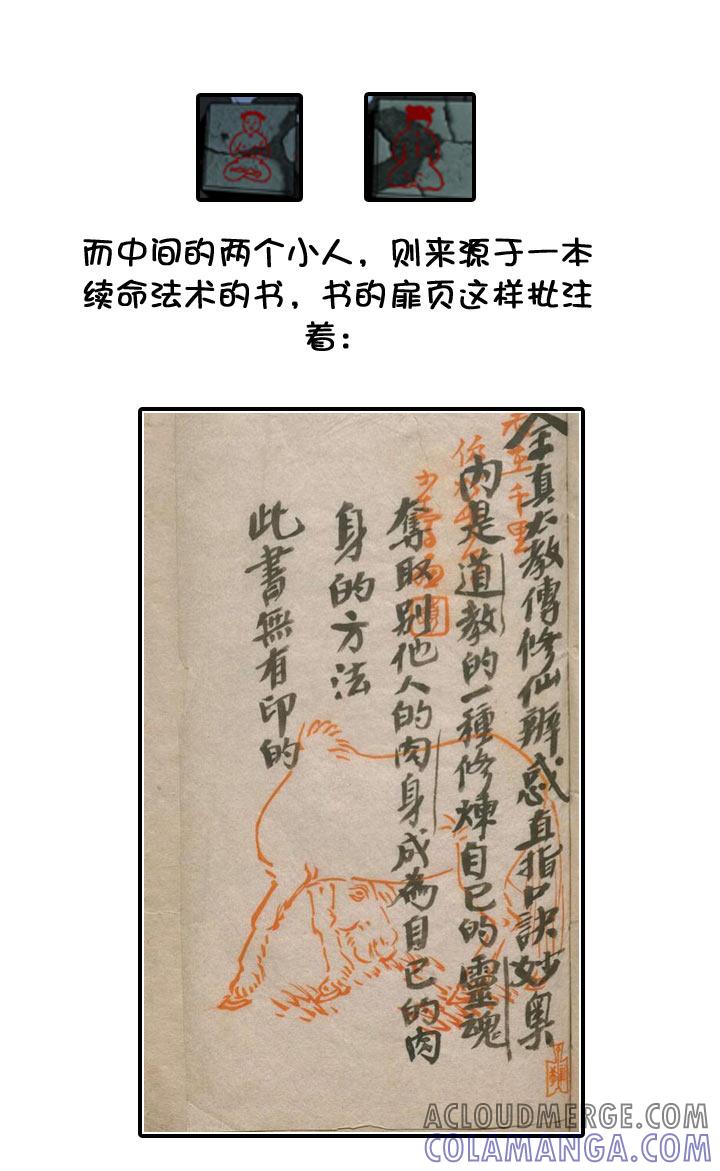 而中间的两个小人，则来源于一本
续命法术的书，书的扉页这样批注
着：
全真必教傳修仙辨惑直指口訣妙奥
内是道教的一種修煉自己的靈魂
奪取别他人的肉身成為自己的肉
身的方法
此書無有印的
ACLOUDMERGE.COM
COLAMANGA.COM